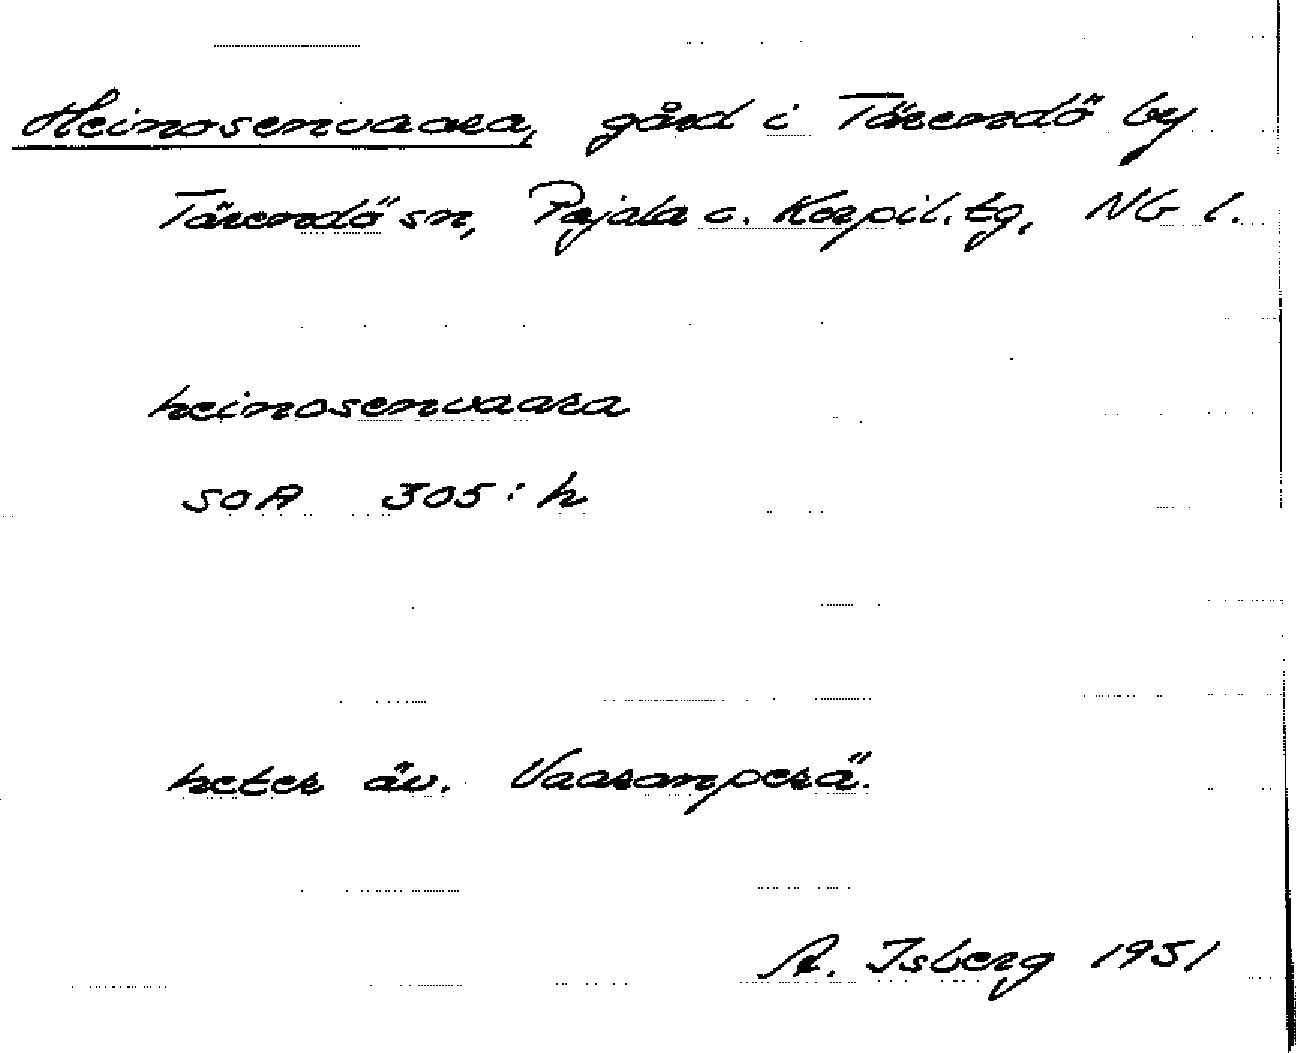 Heinosenvaara, gård i Tärendö by
Tärendö sn, Pajala o. Korpil. tg, NG l.
heinosenvaara
SOA 305: h
heter äv. Vaaranperä.
A. Isberg 1951